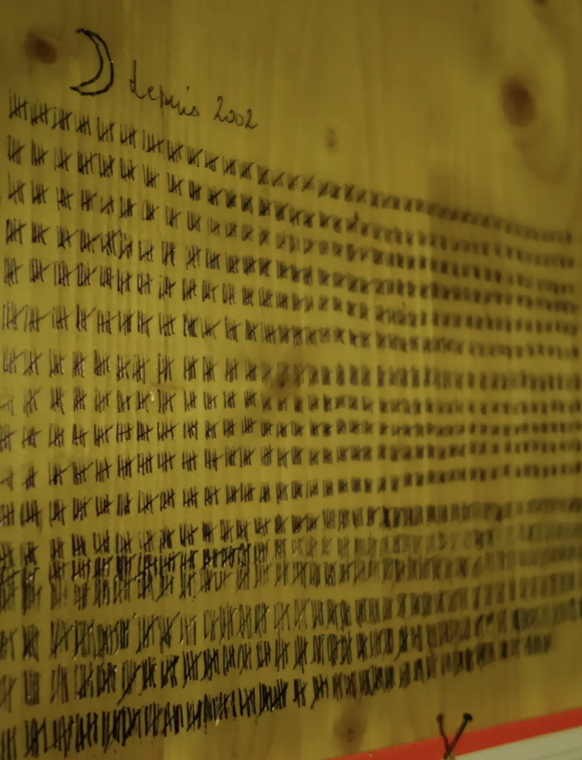 depuis 2002